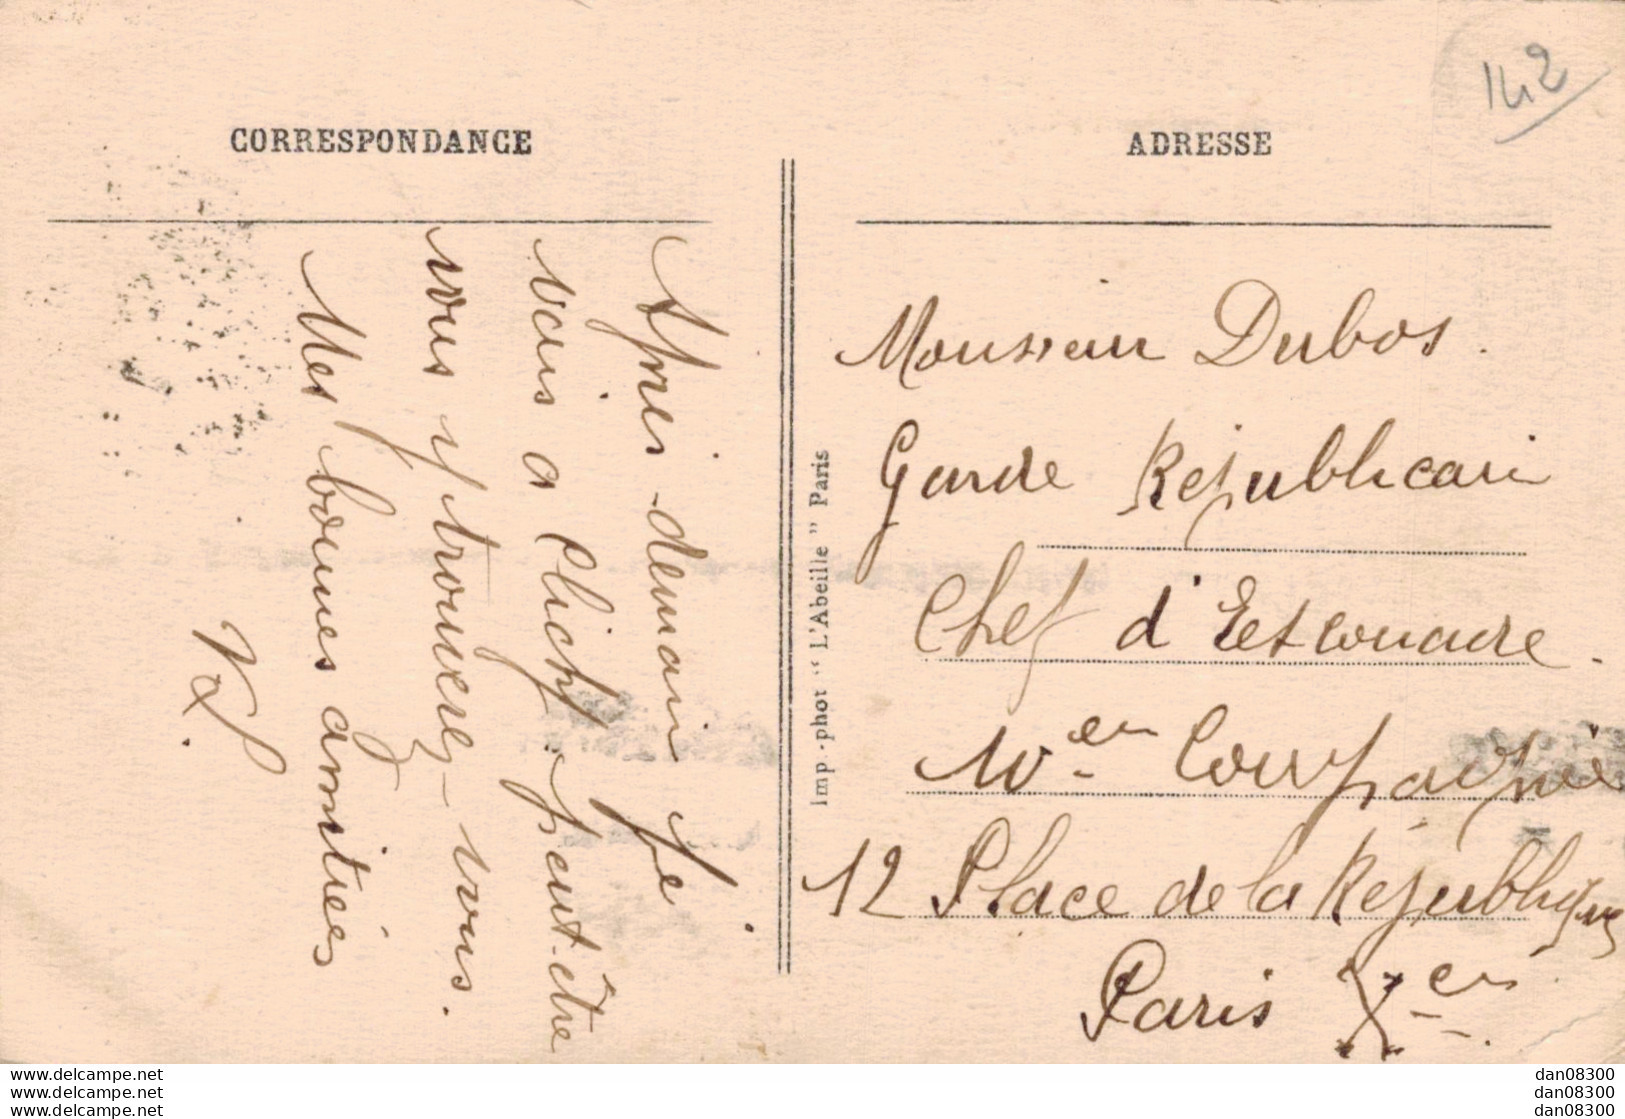 142
CORRESPONDANCE
Après-demain je
vais a Clichy. peut-être
vous y trouverez-vous.
Mes bonnes amitiés
Imp.-phot "L'Abeille" Paris
ADRESSE
Monsieur Dubos.
Garde Républicain
Chef d'Escouade.
Compagnie
12 Place de la République
Paris X
www.delcampe.net
www.delcampe.net
www.delcampe.net
dan08300
dan08300
dan08300